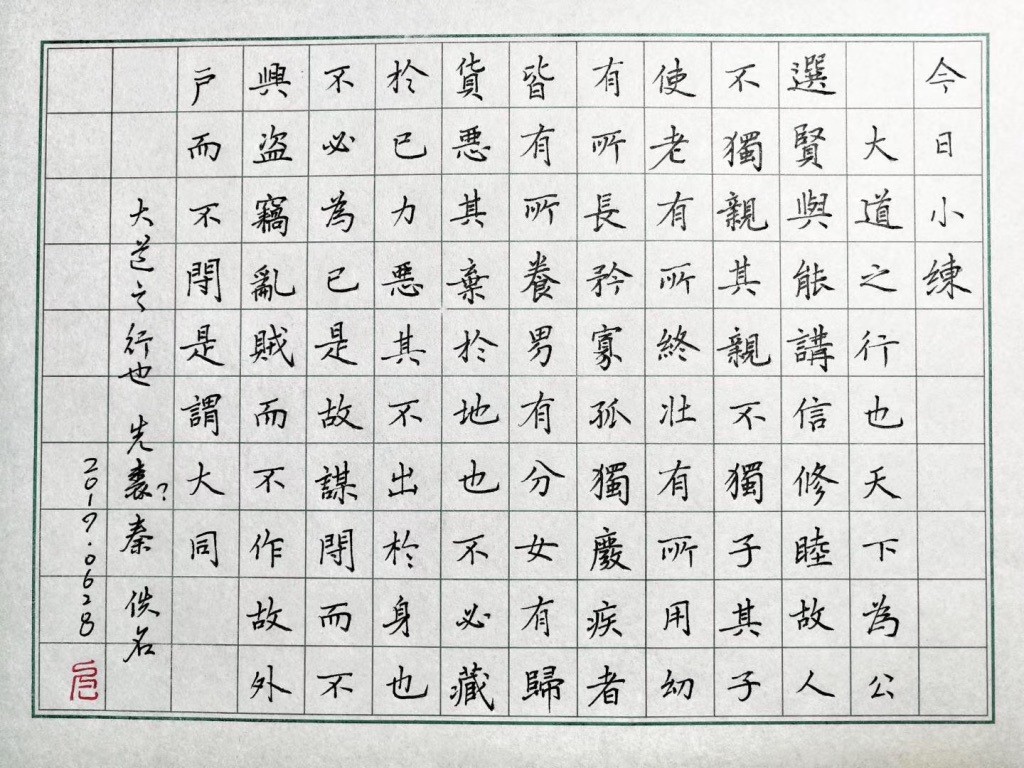 今日小練
大道之行也天下為公
選賢與能講信修睦故人
不獨親其親不獨子其子
使老有所終壯有所用幼
有所長矜寡孤獨廢疾者
皆有所養男有分女有歸
貨悪其棄於地也不必藏
於己力悪其不出於身也
不必為己是故謀閉而不
興盜竊亂賊而不作故外
戶而不閉是謂大同
大道之行也 先秦 佚名
2019.0628